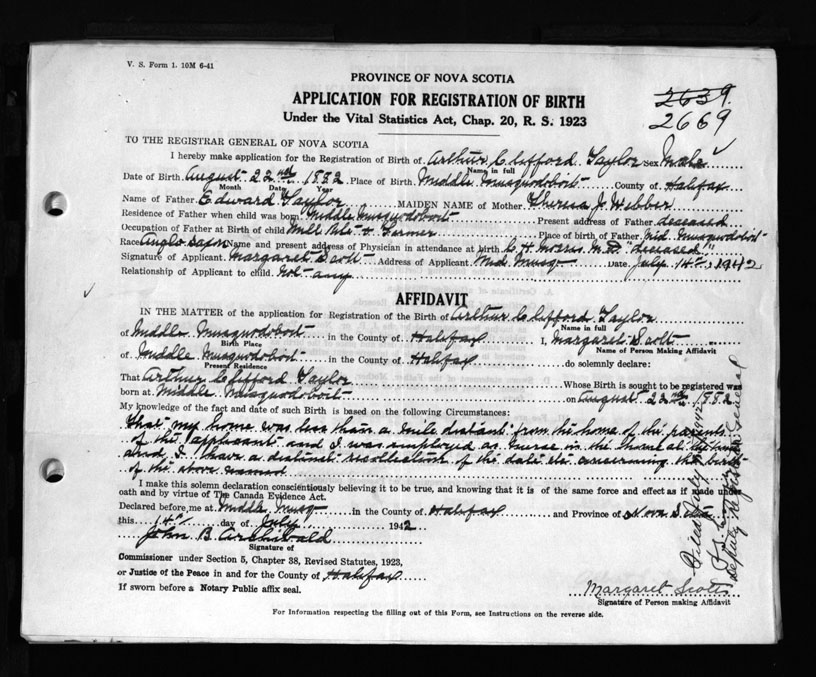 V. S. Form 1. 10M 6-41
PROVINCE OF NOVA SCOTIA
APPLICATION FOR REGISTRATION OF BIRTH
Under the Vital Statistics Act, Chap. 20, R. S. 1923
2639.
2669
TO THE REGISTRAR GENERAL OF NOVA SCOTIA
I hereby make application for the Registration of Birth of Arthur Clifford Taylor Sex Male
Name in full
Date of Birth August 22nd 1882 Place of Birth Middle Musquodoboit County of Halifax
Month Date Year
Name of Father Edward Taylor MAIDEN NAME of Mother Theresa J Webber
Residence of Father when child was born Middle Musquodoboit Present address of Father deceased
Occupation of Father at Birth of child Mill & Farmer Place of birth of Father Mid. Musquodoboit
Race Anglo Saxon Name and present address of Physician in attendance at birth C. H. Morris M.D. "deceased"
Signature of Applicant Margaret Scott Address of Applicant Mid Musq Date July 14th 1942
Relationship of Applicant to child Not any
AFFIDAVIT
IN THE MATTER of the application for Registration of the Birth of Arthur Clifford Taylor
Name in full
of Middle Musquodoboit in the County of Halifax I, Margaret Scott
Birth Place Name of Person Making Affidavit
of Middle Musquodoboit in the County of Halifax do solemnly declare:
Present Residence
That Arthur Clifford Taylor Whose Birth is sought to be registered was
born at Middle Musquodoboit on August 22nd 1882
My knowledge of the fact and date of such Birth is based on the following Circumstances:
That my home was less than a mile distant from the home of the parents
of the applicant and I was employed as nurse in the home at the time
and I have a distinct recollection of the date etc concerning the birth
of the above named
I make this solemn declaration conscientiously believing it to be true, and knowing that it is of the same force and effect as if made under
oath and by virtue of The Canada Evidence Act.
Declared before me at Middle Musq in the County of Halifax and Province of Nova Scotia
this 14th day of July 1942
John B. Archibald
Signature of
Commissioner under Section 5, Chapter 38, Revised Statutes, 1923,
or Justice of the Peace in and for the County of Halifax
If sworn before a Notary Public affix seal.
Margaret Scott
Signature of Person making Affidavit
For Information respecting the filling out of this Form, see Instructions on the reverse side.
Filed July
Deputy Registrar General